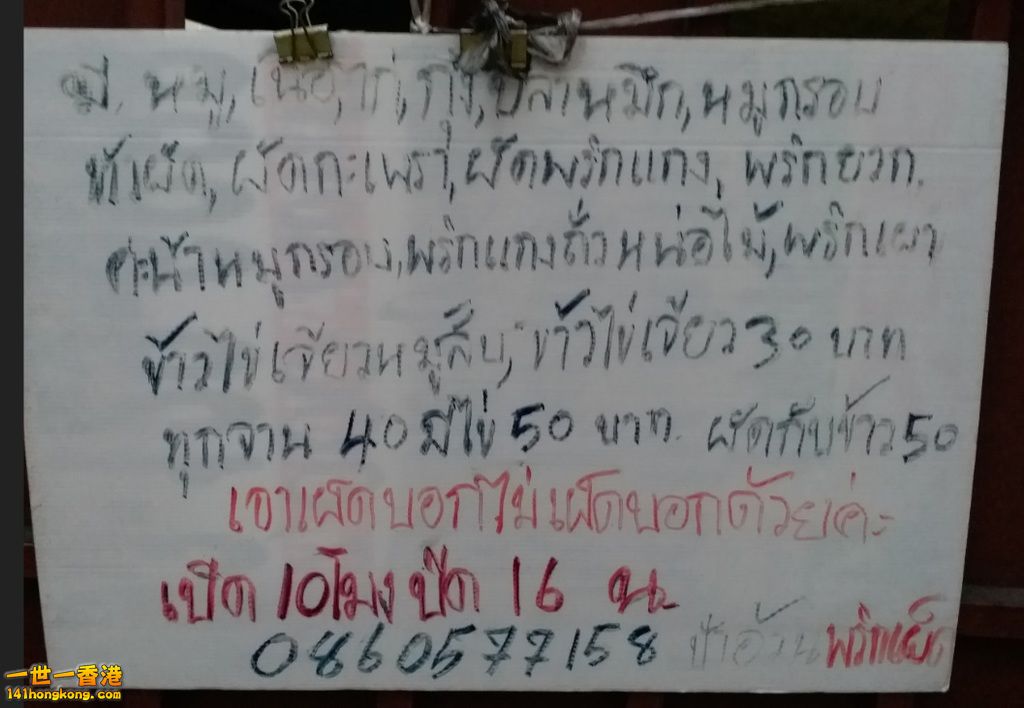 มี, หมู, เนื้อ, ไก่, กุ้ง, ปลาหมึก, หมูกรอบ
ผัดเผ็ด, ผัดกะเพรา, ผัดพริกแกง, พริกหยวก.
คะน้าหมูกรอบ, พริกแกงถั่วหน่อไม้, พริกเผา
ข้าวไข่เจียวหมูสับ, ข้าวไข่เจียว 30 บาท
ทุกจาน 40 มีไข่ 50 บาท. ผัดกับข้าว 50
เอาเผ็ดบอกไม่เผ็ดบอกด้วยค่ะ
เปิด 10 โมง ปิด 16 น.
0860577158 ป้าอ้วน พริกเผ็ด
一世一香港
141hongkong.com